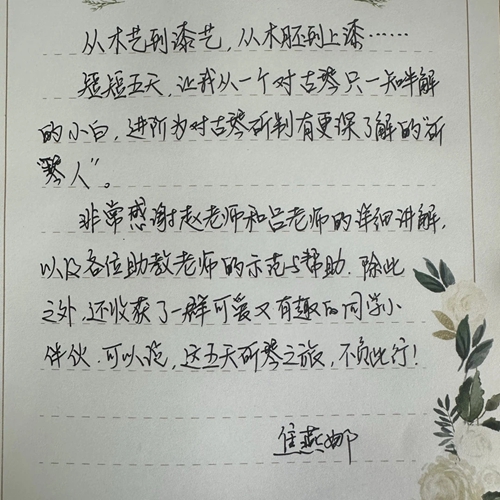 从木艺到漆艺，从木胚到上漆……
短短五天，让我从一个对古琴只一知半解
的小白，进阶为对古琴斫制有更深了解的“斫
琴人”。
非常感谢赵老师和吕老师的详细讲解，
以及各位助教老师的示范与帮助。除此
之外，还收获了一群可爱又有趣的同学小
伙伴。可以说，这五天斫琴之旅，不负此行！
侯燕娜